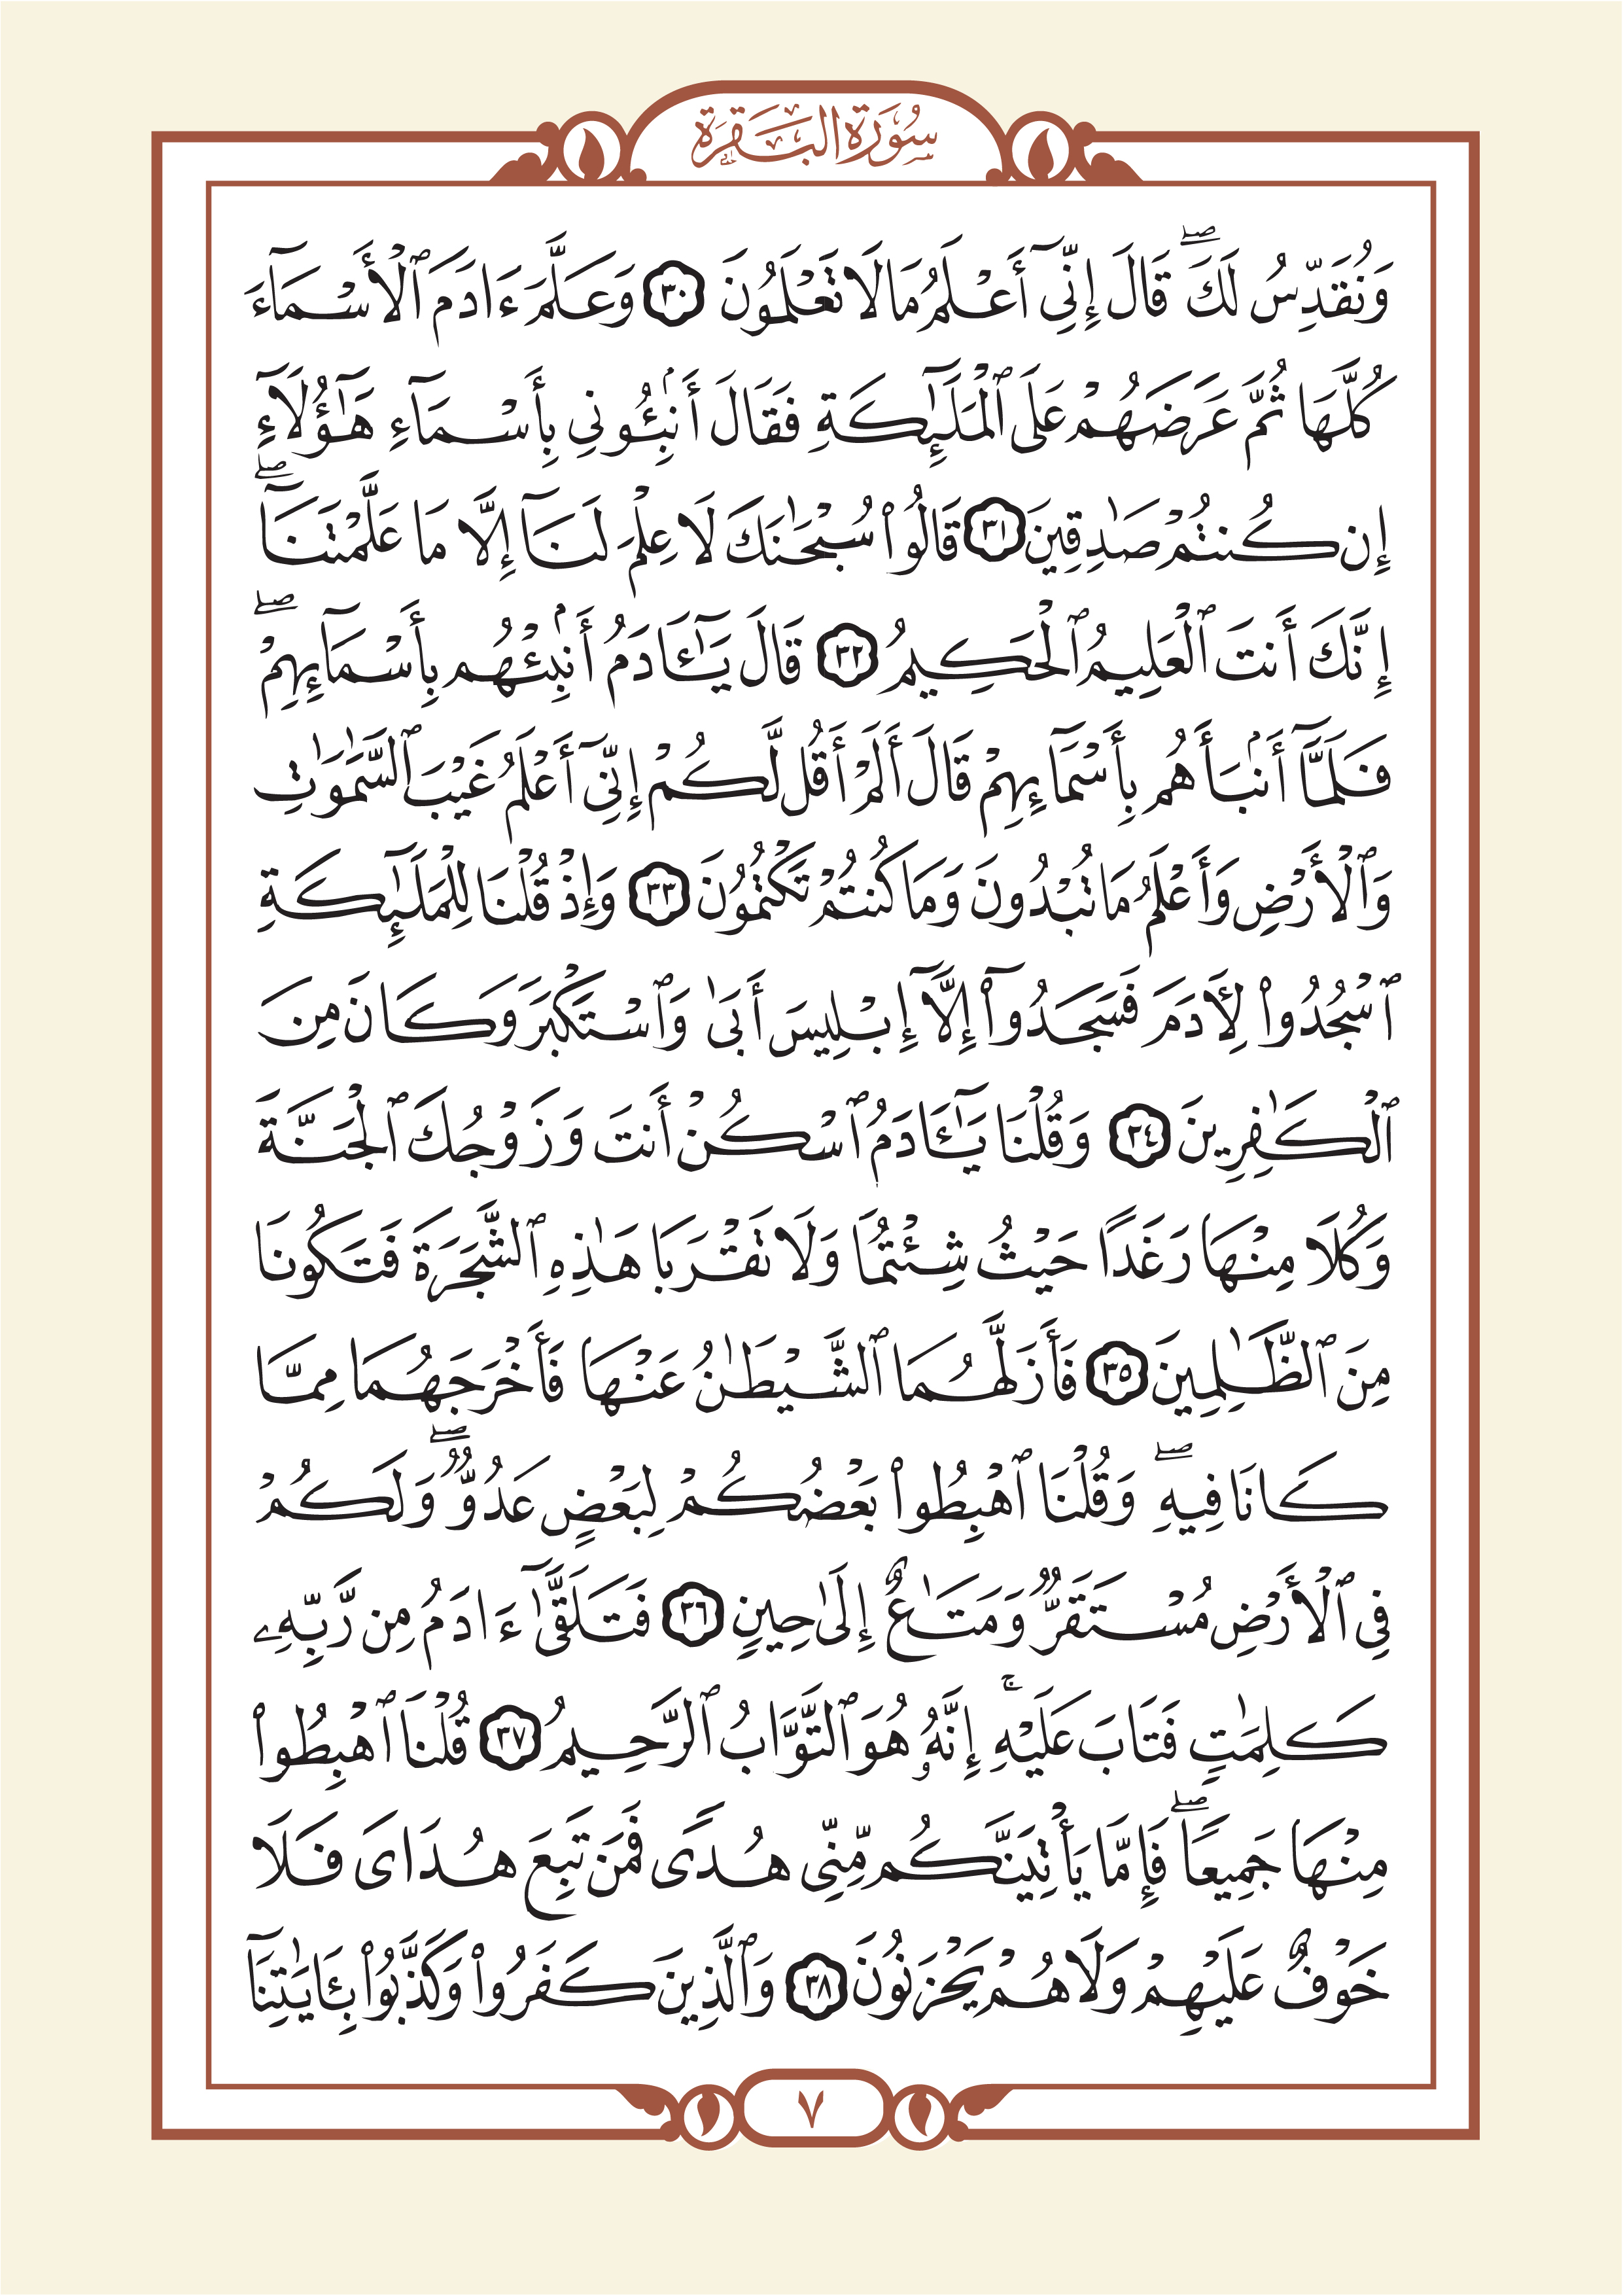 سُورَةُ البَقَرَة
وَنُقَدِّسُ لَكَۖ قَالَ إِنِّيٓ أَعۡلَمُ مَا لَا تَعۡلَمُونَ ٣٠ وَعَلَّمَ ءَادَمَ ٱلۡأَسۡمَآءَ
كُلَّهَا ثُمَّ عَرَضَهُمۡ عَلَى ٱلۡمَلَٰٓئِكَةِ فَقَالَ أَنۢبِـُٔونِي بِأَسۡمَآءِ هَٰٓؤُلَآءِ
إِن كُنتُمۡ صَٰدِقِينَ ٣١ قَالُواْ سُبۡحَٰنَكَ لَا عِلۡمَ لَنَآ إِلَّا مَا عَلَّمۡتَنَآۖ
إِنَّكَ أَنتَ ٱلۡعَلِيمُ ٱلۡحَكِيمُ ٣٢ قَالَ يَٰٓـَٔادَمُ أَنۢبِئۡهُم بِأَسۡمَآئِهِمۡۖ
فَلَمَّآ أَنۢبَأَهُم بِأَسۡمَآئِهِمۡ قَالَ أَلَمۡ أَقُل لَّكُمۡ إِنِّيٓ أَعۡلَمُ غَيۡبَ ٱلسَّمَٰوَٰتِ
وَٱلۡأَرۡضِ وَأَعۡلَمُ مَا تُبۡدُونَ وَمَا كُنتُمۡ تَكۡتُمُونَ ٣٣ وَإِذۡ قُلۡنَا لِلۡمَلَٰٓئِكَةِ
ٱسۡجُدُواْ لِأٓدَمَ فَسَجَدُوٓاْ إِلَّآ إِبۡلِيسَ أَبَىٰ وَٱسۡتَكۡبَرَ وَكَانَ مِنَ
ٱلۡكَٰفِرِينَ ٣٤ وَقُلۡنَا يَٰٓـَٔادَمُ ٱسۡكُنۡ أَنتَ وَزَوۡجُكَ ٱلۡجَنَّةَ
وَكُلَا مِنۡهَا رَغَدًا حَيۡثُ شِئۡتُمَا وَلَا تَقۡرَبَا هَٰذِهِ ٱلشَّجَرَةَ فَتَكُونَا
مِنَ ٱلظَّٰلِمِينَ ٣٥ فَأَزَلَّهُمَا ٱلشَّيۡطَٰنُ عَنۡهَا فَأَخۡرَجَهُمَا مِمَّا
كَانَا فِيهِۖ وَقُلۡنَا ٱهۡبِطُواْ بَعۡضُكُمۡ لِبَعۡضٍ عَدُوّٞۖ وَلَكُمۡ
فِي ٱلۡأَرۡضِ مُسۡتَقَرّٞ وَمَتَٰعٌ إِلَىٰ حِينٖ ٣٦ فَتَلَقَّىٰٓ ءَادَمُ مِن رَّبِّهِۦ
كَلِمَٰتٖ فَتَابَ عَلَيۡهِۚ إِنَّهُۥ هُوَ ٱلتَّوَّابُ ٱلرَّحِيمُ ٣٧ قُلۡنَا ٱهۡبِطُواْ
مِنۡهَا جَمِيعٗاۖ فَإِمَّا يَأۡتِيَنَّكُم مِّنِّي هُدٗى فَمَن تَبِعَ هُدَايَ فَلَا
خَوۡفٌ عَلَيۡهِمۡ وَلَا هُمۡ يَحۡزَنُونَ ٣٨ وَٱلَّذِينَ كَفَرُواْ وَكَذَّبُواْ بِـَٔايَٰتِنَآ
٧